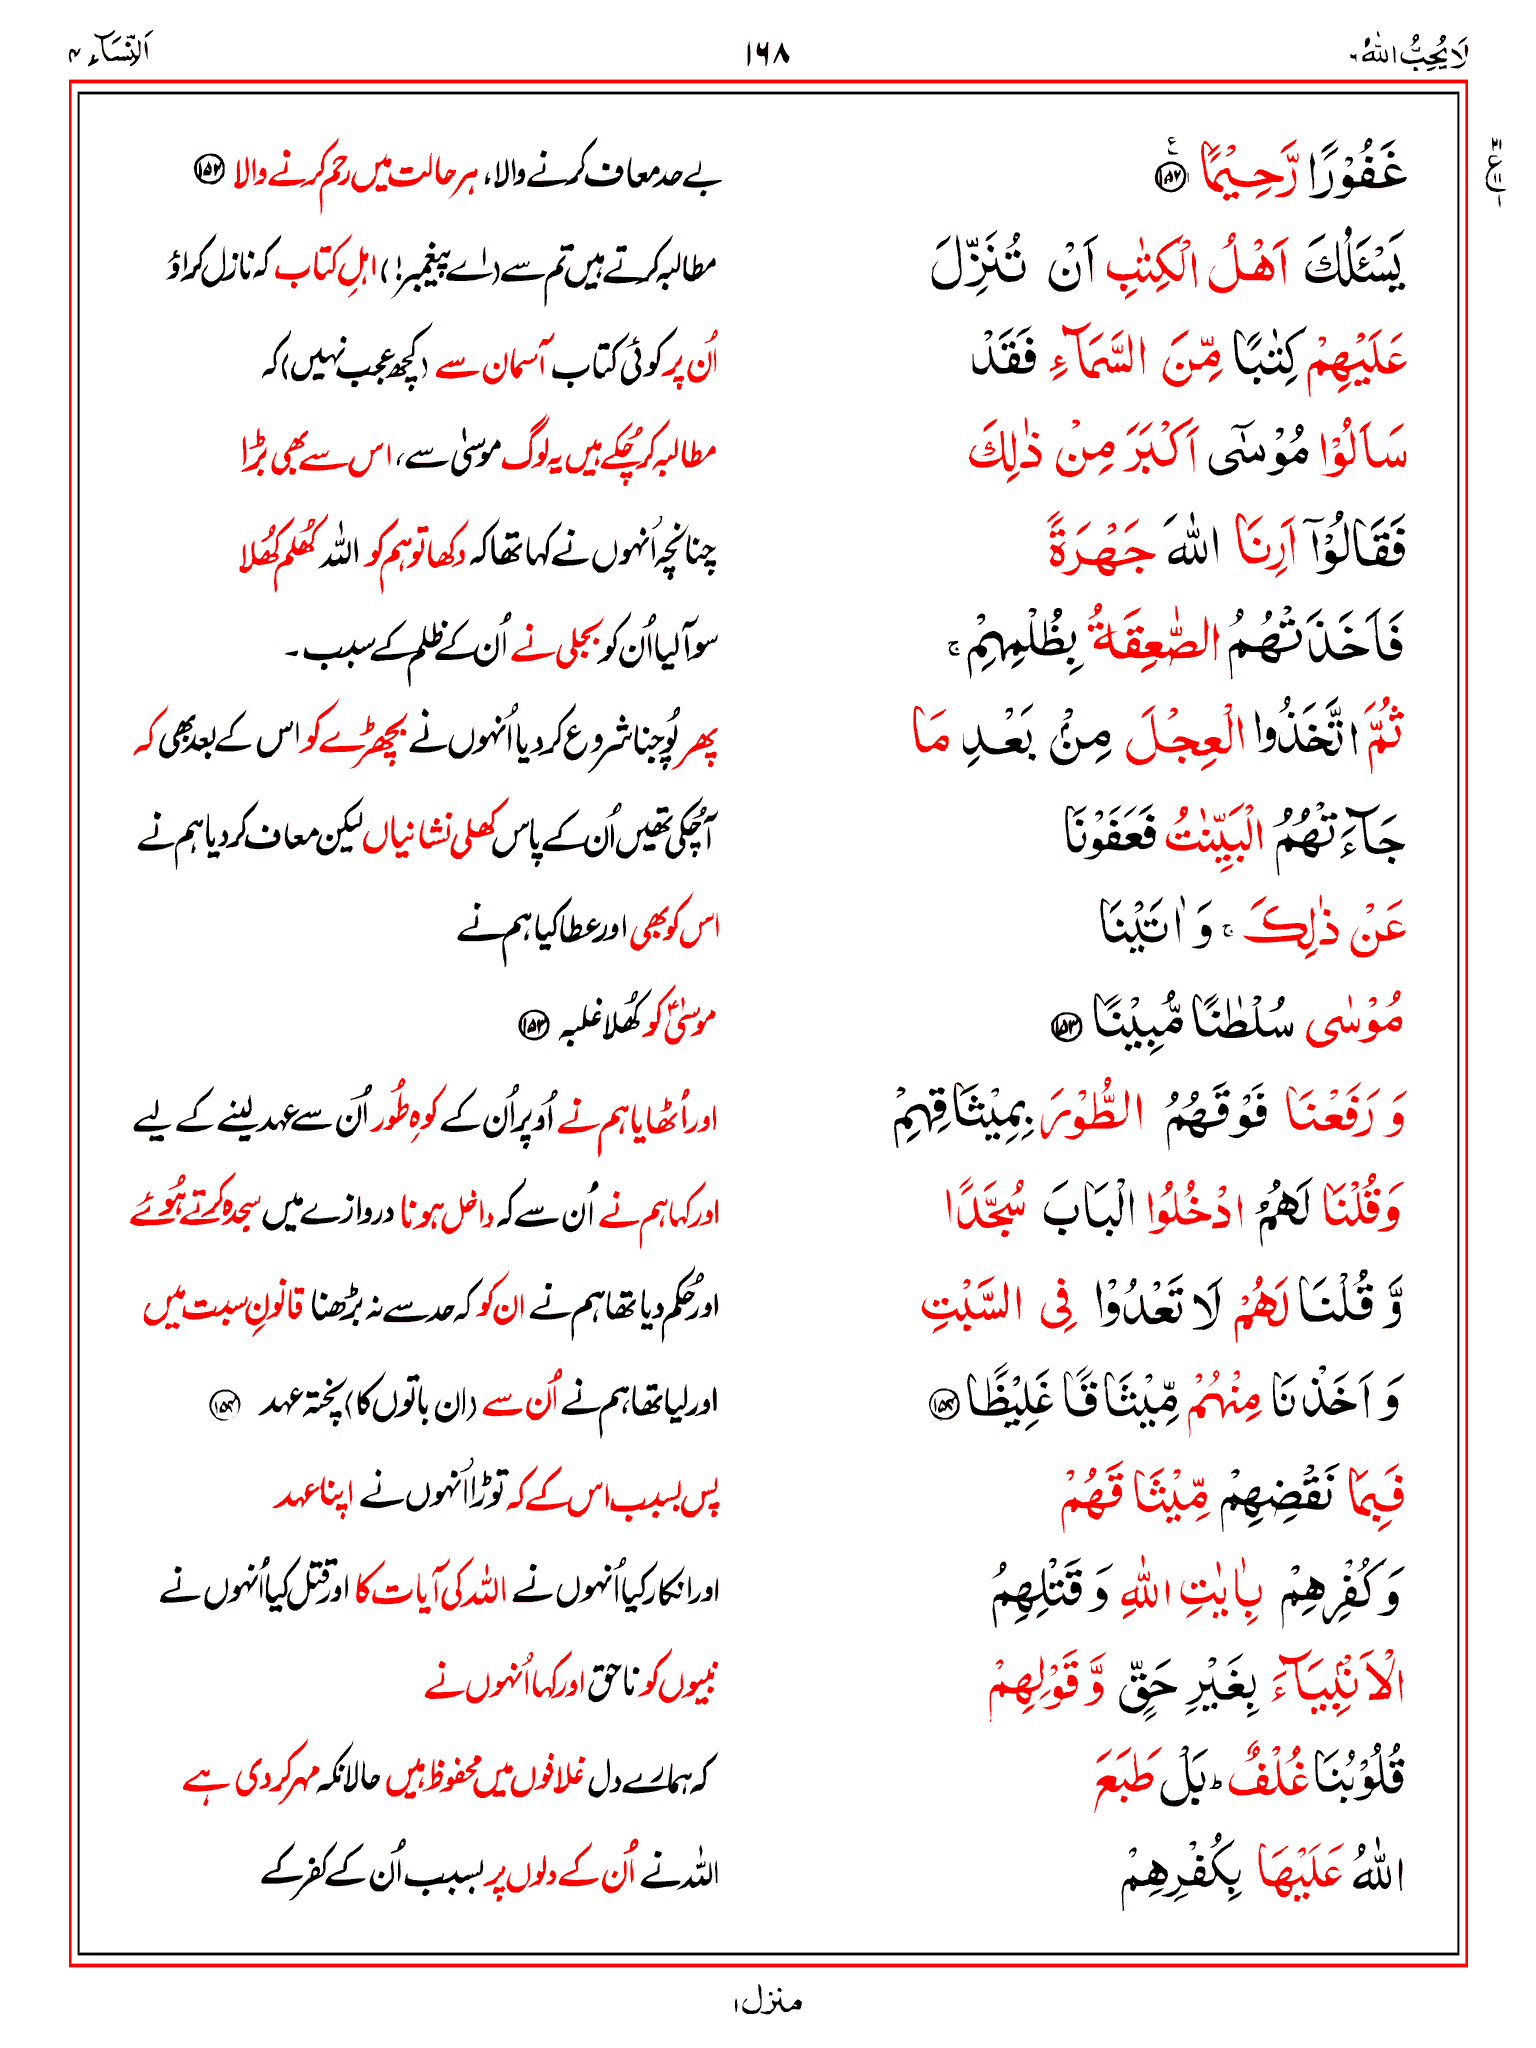 لَا يُحِبُّ اللّٰهُ ٦
١٦٨
اَلنِّسَآء ٤
غَفُوْرًا رَّحِيْمًا ﴿١٥٢﴾ ع
بے حد معاف کرنے والا، ہر حالت میں رحم کرنے والا ﴿۱۵۲﴾
يَسْـَٔلُكَ اَهْلُ الْكِتٰبِ اَنْ تُنَزِّلَ
مطالبہ کرتے ہیں تم سے (اے پیغمبر!) اہلِ کتاب کہ نازل کراؤ
عَلَيْهِمْ كِتٰبًا مِّنَ السَّمَآءِ فَقَدْ
اُن پر کوئی کتاب آسمان سے (کچھ عجب نہیں) کہ
سَاَلُوْا مُوْسٰٓى اَكْبَرَ مِنْ ذٰلِكَ
مطالبہ کرچُکے ہیں یہ لوگ موسیٰ سے، اس سے بھی بڑا
فَقَالُوْٓا اَرِنَا اللّٰهَ جَهْرَةً
چنانچہ اُنہوں نے کہا تھا کہ دکھا تو ہم کو اللہ کُھلم کُھلا
فَاَخَذَتْهُمُ الصّٰعِقَةُ بِظُلْمِهِمْ ۚ
سو آلیا اُن کو بجلی نے اُن کے ظلم کے سبب۔
ثُمَّ اتَّخَذُوا الْعِجْلَ مِنْۢ بَعْدِ مَا
پھر پُوجنا شروع کردیا اُنہوں نے بچھڑے کو اس کے بعد بھی کہ
جَآءَتْهُمُ الْبَيِّنٰتُ فَعَفَوْنَا
آچُکی تھیں اُن کے پاس کھلی نشانیاں لیکن معاف کردیا ہم نے
عَنْ ذٰلِكَ ۚ وَ اٰتَيْنَا
اس کو بھی اور عطا کیا ہم نے
مُوْسٰى سُلْطٰنًا مُّبِيْنًا ﴿١٥٣﴾
موسیٰؑ کو کُھلا غلبہ ﴿۱۵۳﴾
وَ رَفَعْنَا فَوْقَهُمُ الطُّوْرَ بِمِيْثَاقِهِمْ
اور اُٹھایا ہم نے اُوپر اُن کے کوہِ طُور اُن سے عہد لینے کے لیے
وَقُلْنَا لَهُمُ ادْخُلُوا الْبَابَ سُجَّدًا
اور کہا ہم نے اُن سے کہ داخل ہونا دروازے میں سجدہ کرتے ہُوئے
وَّ قُلْنَا لَهُمْ لَا تَعْدُوْا فِى السَّبْتِ
اور حُکم دیا تھا ہم نے ان کو کہ حد سے نہ بڑھنا قانونِ سبت میں
وَ اَخَذْنَا مِنْهُمْ مِّيْثَاقًا غَلِيْظًا ﴿١٥٤﴾
اور لیا تھا ہم نے اُن سے (ان باتوں کا) پختہ عہد ﴿۱۵۴﴾
فَبِمَا نَقْضِهِمْ مِّيْثَاقَهُمْ
پس بسبب اس کے کہ توڑا اُنہوں نے اپنا عہد
وَ كُفْرِهِمْ بِاٰيٰتِ اللّٰهِ وَ قَتْلِهِمُ
اور انکار کیا اُنہوں نے اللہ کی آیات کا اور قتل کیا اُنہوں نے
الْاَنْۢبِيَآءَ بِغَيْرِ حَقٍّ وَّ قَوْلِهِمْ
نبیوں کو ناحق اور کہا اُنہوں نے
قُلُوْبُنَا غُلْفٌ ؕ بَلْ طَبَعَ
کہ ہمارے دل غلافوں میں محفوظ ہیں حالانکہ مہر کردی ہے
اللّٰهُ عَلَيْهَا بِكُفْرِهِمْ
اللہ نے اُن کے دلوں پر بسبب اُن کے کفر کے
منزل ١